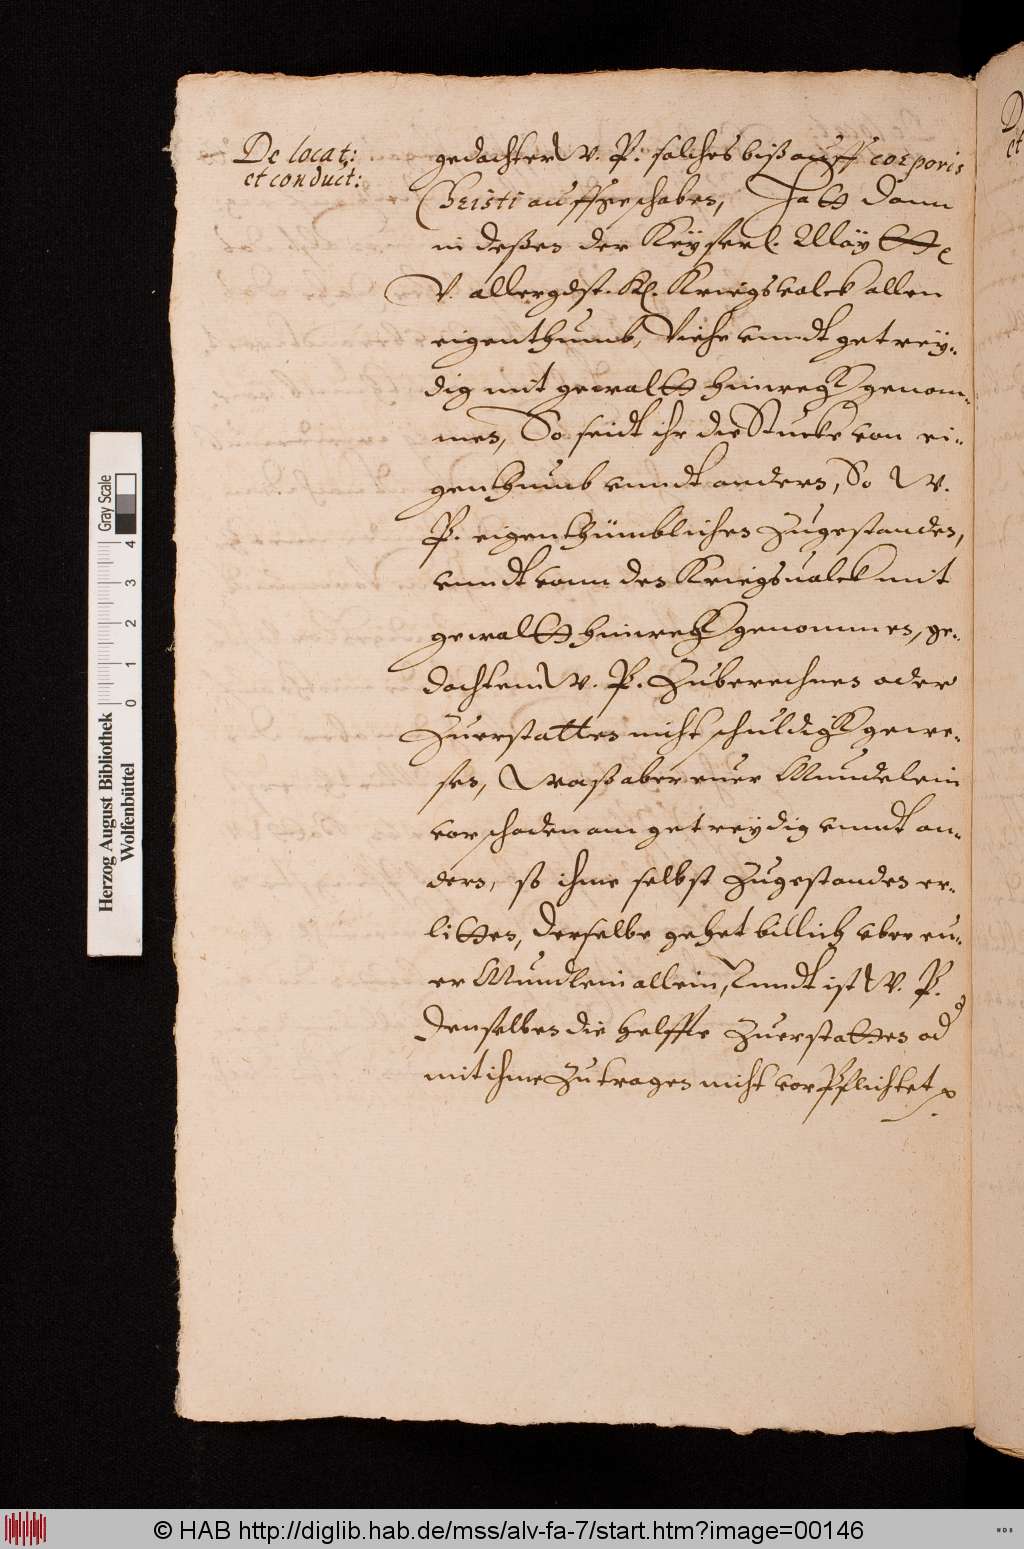 De locat:
et conduct:
gedachter W. P. solches biß auff corporis
Christi auffgeschoben, Hatt dann
in deßen der Keyserl. May tt
V. allergdst. H. Kriegsvolck allen
eigenthumb, Viehe unndt getrey-
dig mit gewaltt hinwegk genom-
men, So seidt ihr die Stucke von ei-
genthumb unndt anders, So W.
P. eigenthümblichen Zugestanden,
unndt vonn den Kriegsvolck mit
gewaltt hinwegk genommen, ge-
dachtem W. P. Zuberechnen oder
Zuerstatten nicht schuldigk gewe-
sen, Waß aber euer Mundelein
vor schaden am getreydig unndt an-
ders, so ihme selbst Zugestanden er-
litten, derselbe gehet billich uber eu-
er Mundlein allein, Unndt ist W. P.
denselben die helffte Zuerstatten od
mit ihme Zutragen nicht vorpflichtet
Herzog August Bibliothek
Wolfenbüttel
0 1 2 3 4
Gray Scale
© HAB http://diglib.hab.de/mss/alv-fa-7/start.htm?image=00146